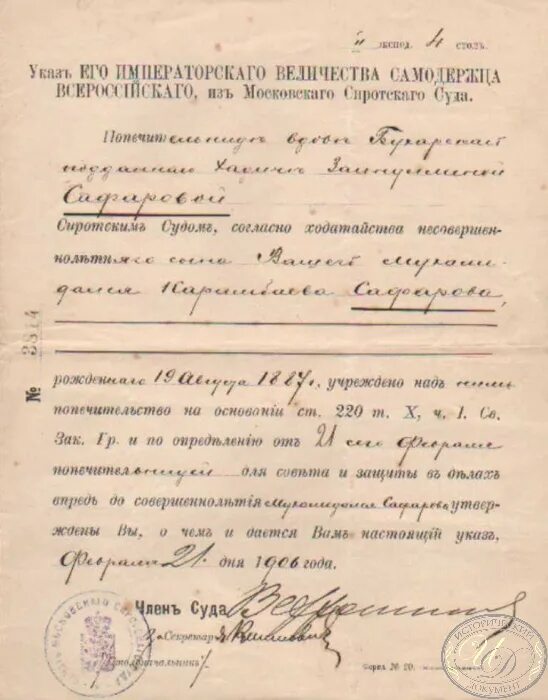 II экспед. 4 столъ.
Указъ ЕГО ИМПЕРАТОРСКАГО ВЕЛИЧЕСТВА САМОДЕРЖЦА
ВСЕРОССІЙСКАГО, изъ Московскаго Сиротскаго Суда.
Попечительницѣ вдовѣ Бухарской
подданной
Сафаровой
Сиротскимъ Судомъ, согласно ходатайства несовершен-
нолѣтняго сына Вашего Мухами-
Карамбаева Сафарова,
№ 3814
рожденнаго 19 Августа 1887 г. учреждено надъ нимъ
попечительство на основаніи ст. 220 т. X, ч. I. Св.
Зак. Гр. и по опредѣленію отъ 21 сего Февраля
попечительницей для совѣта и защиты въ дѣлахъ
впредь до совершеннолѣтія Сафарова утвер-
ждены Вы, о чемъ и дается Вамъ настоящій указъ.
Февраля 21 дня 1906 года.
Членъ Суда
Секретарь
Столоначальникъ
Форма № 20.
ИСТОРИЧЕСКИЙ
ДОКУМЕНТ